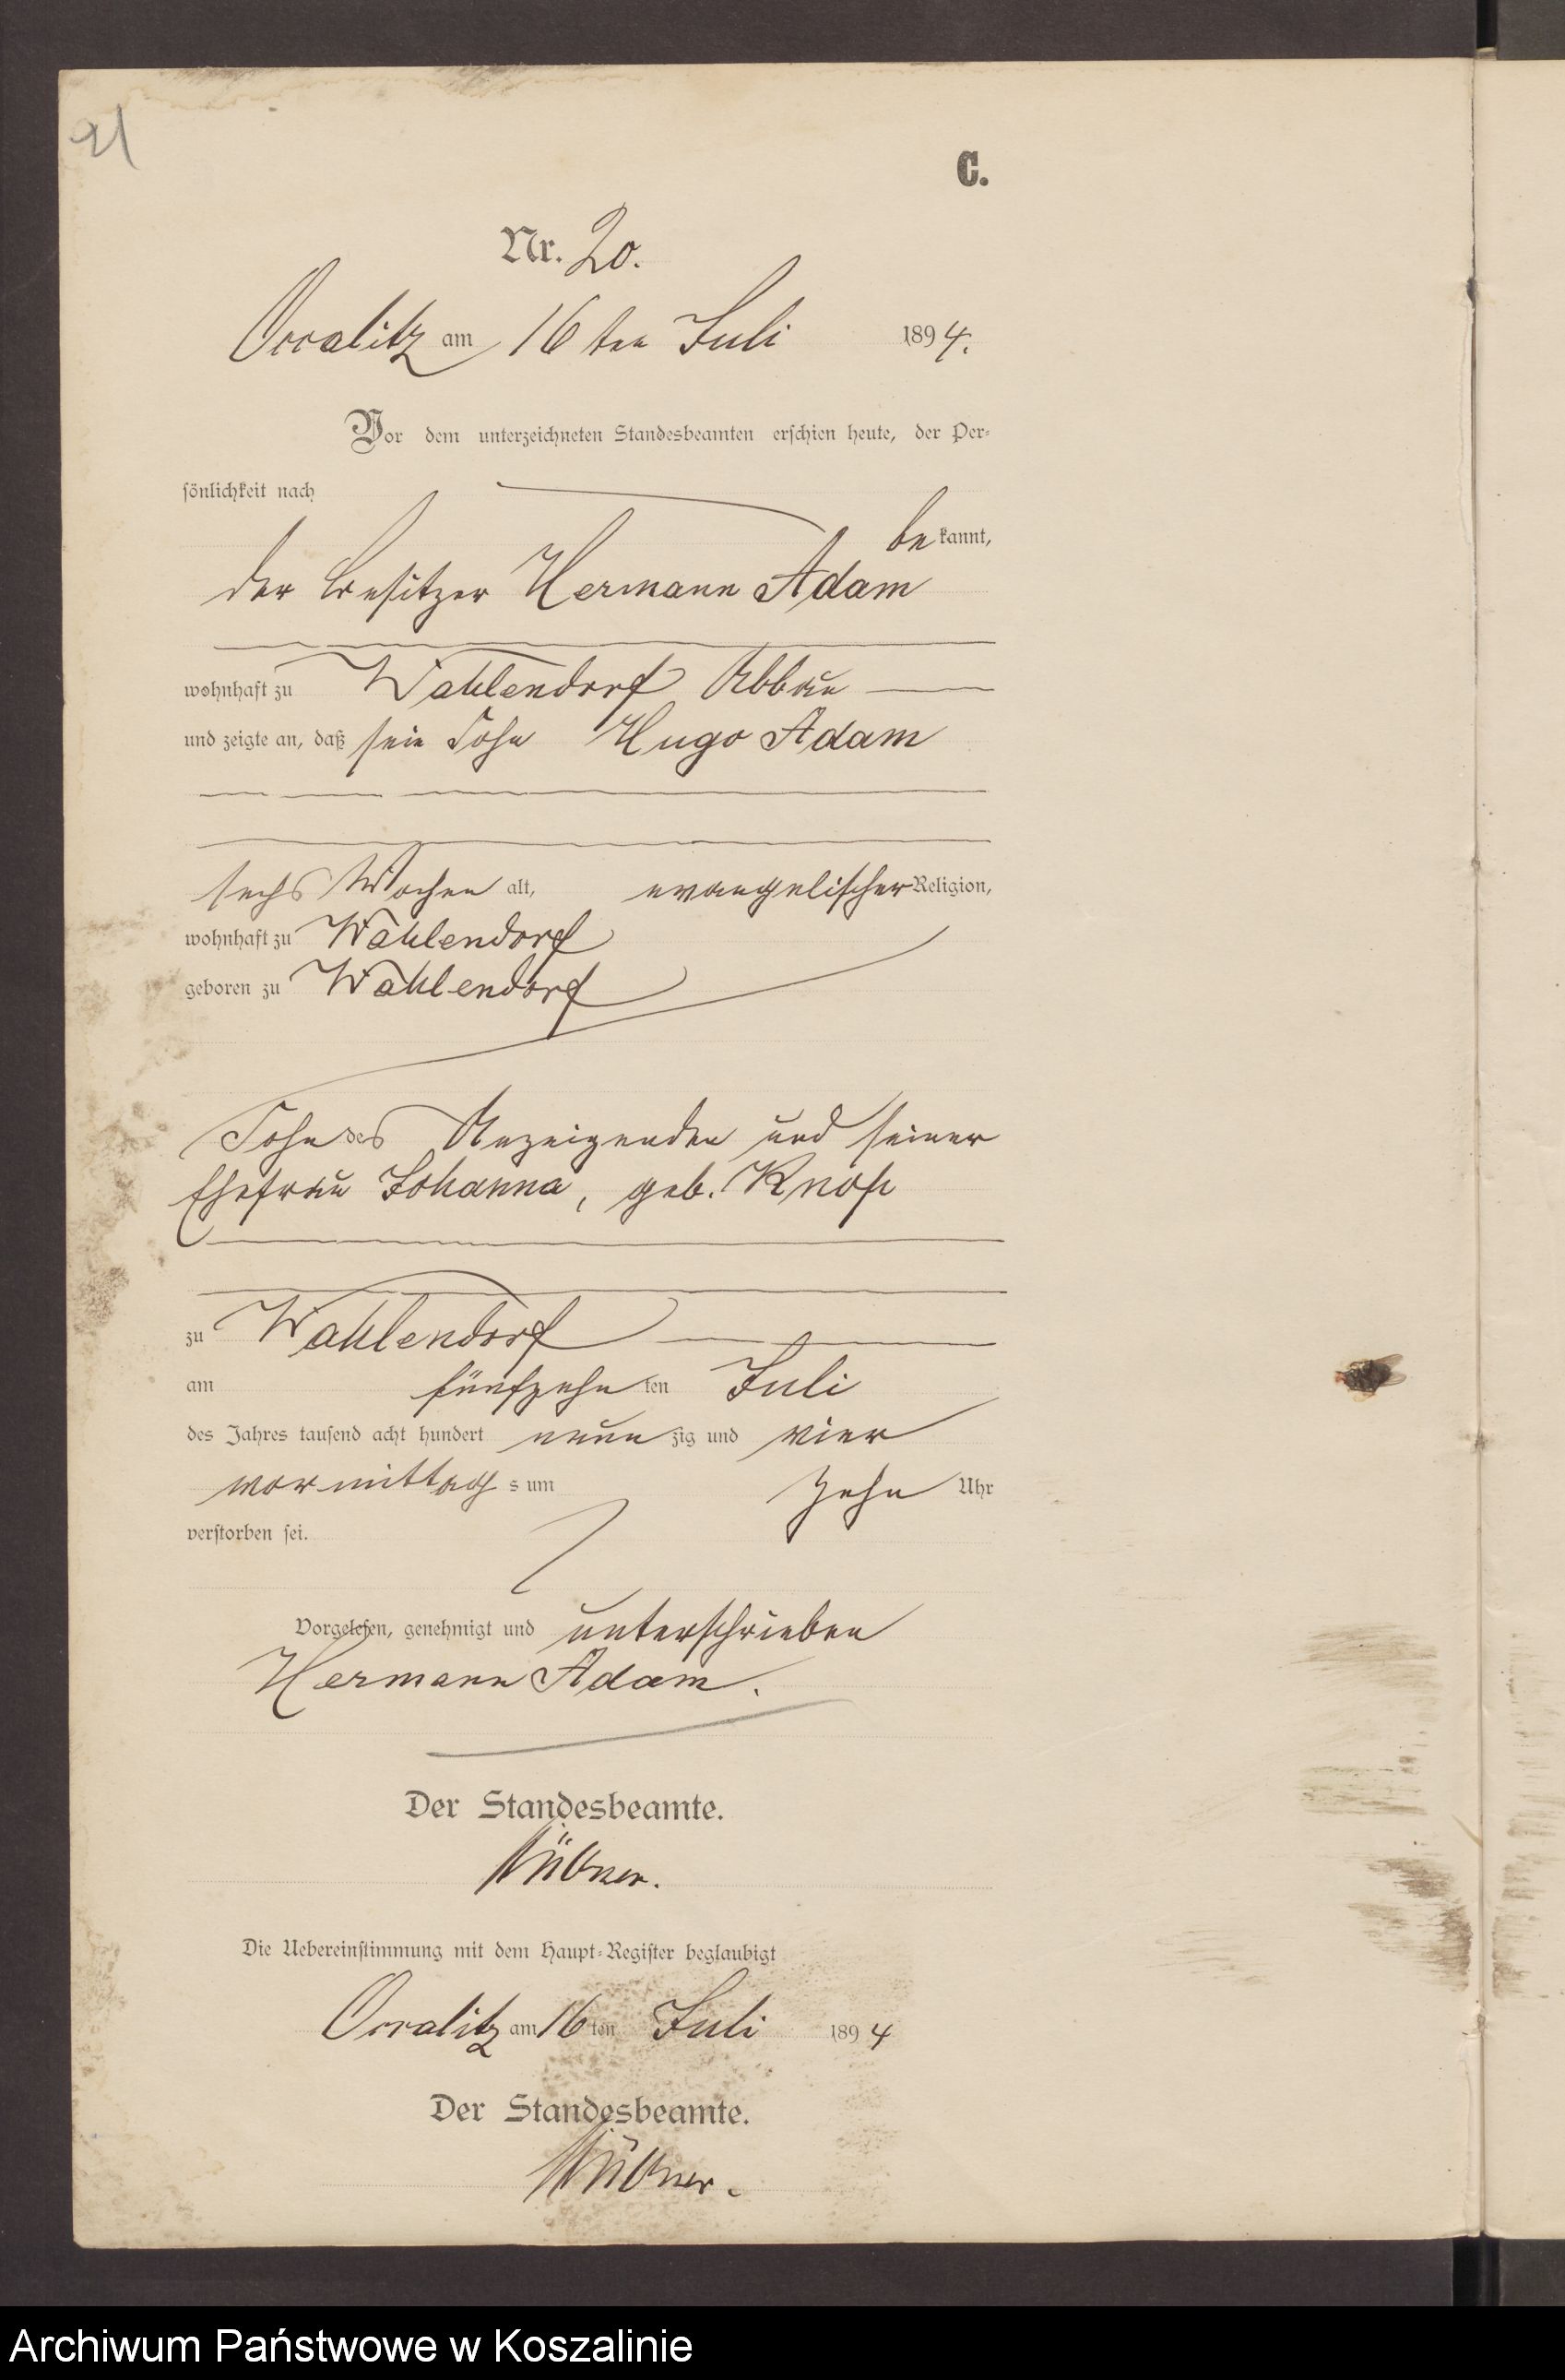 21
C.
Nr. 20.
Occalitz am 16 ten Juli 1894.
Vor dem unterzeichneten Standesbeamten erschien heute, der Per-
sönlichkeit nach
bekannt,
der Besitzer Hermann Adam
wohnhaft zu Wahlendorf Abbau
und zeigte an, daß sein Sohn Hugo Adam
sechs Wochen alt, evangelischer Religion,
wohnhaft zu Wahlendorf
geboren zu Wahlendorf
Sohn des Anzeigenden und seiner
Ehefrau Johanna, geb.
zu Wahlendorf
am fünfzehn ten Juli
des Jahres tausend acht hundert neun zig und vier
vormittag s um zehn Uhr
verstorben sei.
Vorgelesen, genehmigt und unterschrieben
Hermann Adam.
Der Standesbeamte.
Die Uebereinstimmung mit dem Haupt-Register beglaubigt
Occalitz am 16 ten Juli 1894
Der Standesbeamte.
Archiwum Państwowe w Koszalinie